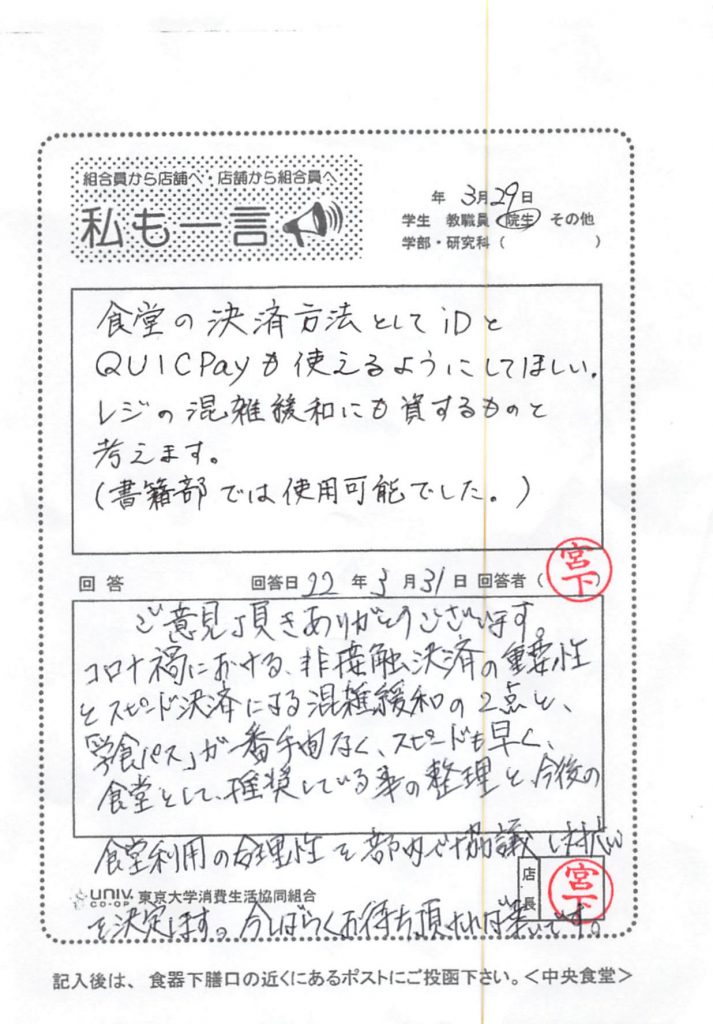 組合員から店舗へ・店舗から組合員へ
私も一言
年 3月29日
学生 教職員 院生 その他
学部・研究科( )
食堂の決済方法としてiDと
QUICPayも使えるようにしてほしい。
レジの混雑緩和にも資するものと
考えます。
(書籍部では使用可能でした。)
回答 回答日 22 年 3 月 31 日 回答者( 宮下 )
ご意見頂きありがとうございます。
コロナ禍における、非接触決済の重要性
とスピード決済による混雑緩和の2点と、
「学食パス」が一番手間なく、スピードも早く、
食堂として、推奨している事の整理と、今後の
食堂利用の合理性を部内で協議し対応
店長 宮下
UNIV. CO-OP 東京大学消費生活協同組合
を決定します。今しばらくお待ち頂ければ幸いです。
記入後は、食器下膳口の近くにあるポストにご投函下さい。<中央食堂>